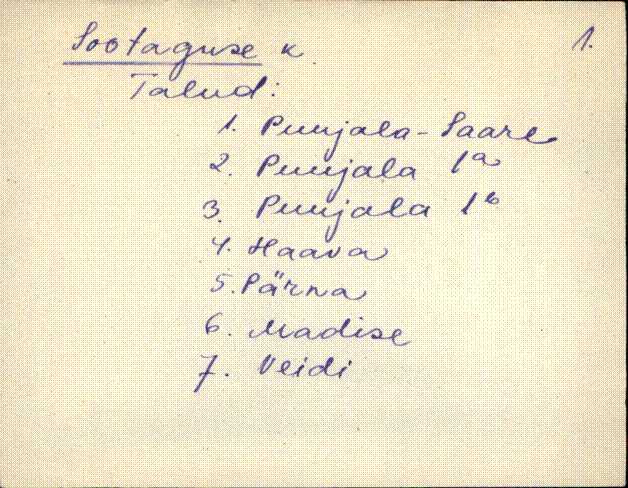 Sootaguse k. 1.
Talud:
1. Puujala-Saare
2. Puujala 1a
3. Puujala 1b
4. Haava
5. Pärna
6. Madise
7. Veidi